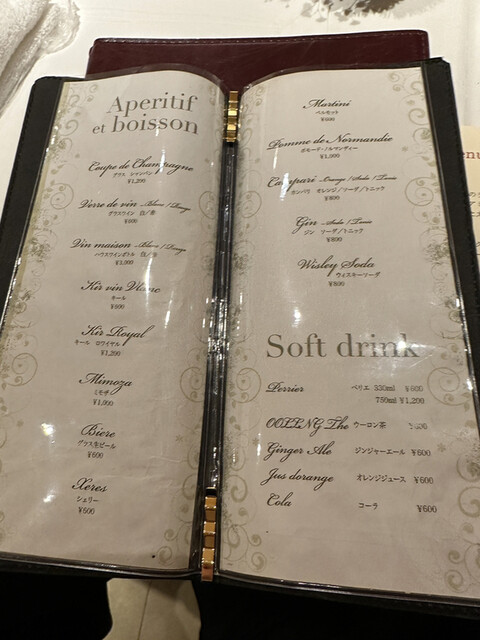 Aperitif
et boisson
Coupe de Champagne
グラス シャンパン
¥1,200
Verre de vin Blanc / Rouge
グラスワイン 白/赤
Vin maison Blanc / Rouge
ハウスワインボトル 白/赤
¥3,000
Kir vin Blanc
キール
Kir Royal
キール ロワイヤル
¥1,200
Mimoza
ミモザ
¥1,000
Biere
グラス生ビール
¥600
Xeres
シェリー
Martini
ベルモット
¥600
Pomme de Normandie
ポモード・ノルマンディー
¥1,000
Campari Orange / Soda / Tonic
カンパリ オレンジ/ソーダ/トニック
¥800
Gin Soda / Tonic
ジン ソーダ/トニック
¥800
Wisley Soda
ウィスキーソーダ
¥800
Soft drink
Perrier ペリエ 330ml ¥600
750ml ¥1,200
OOLLNG The ウーロン茶
Ginger Ale ジンジャーエール ¥600
Jus dorange オレンジジュース ¥600
Cola コーラ ¥600